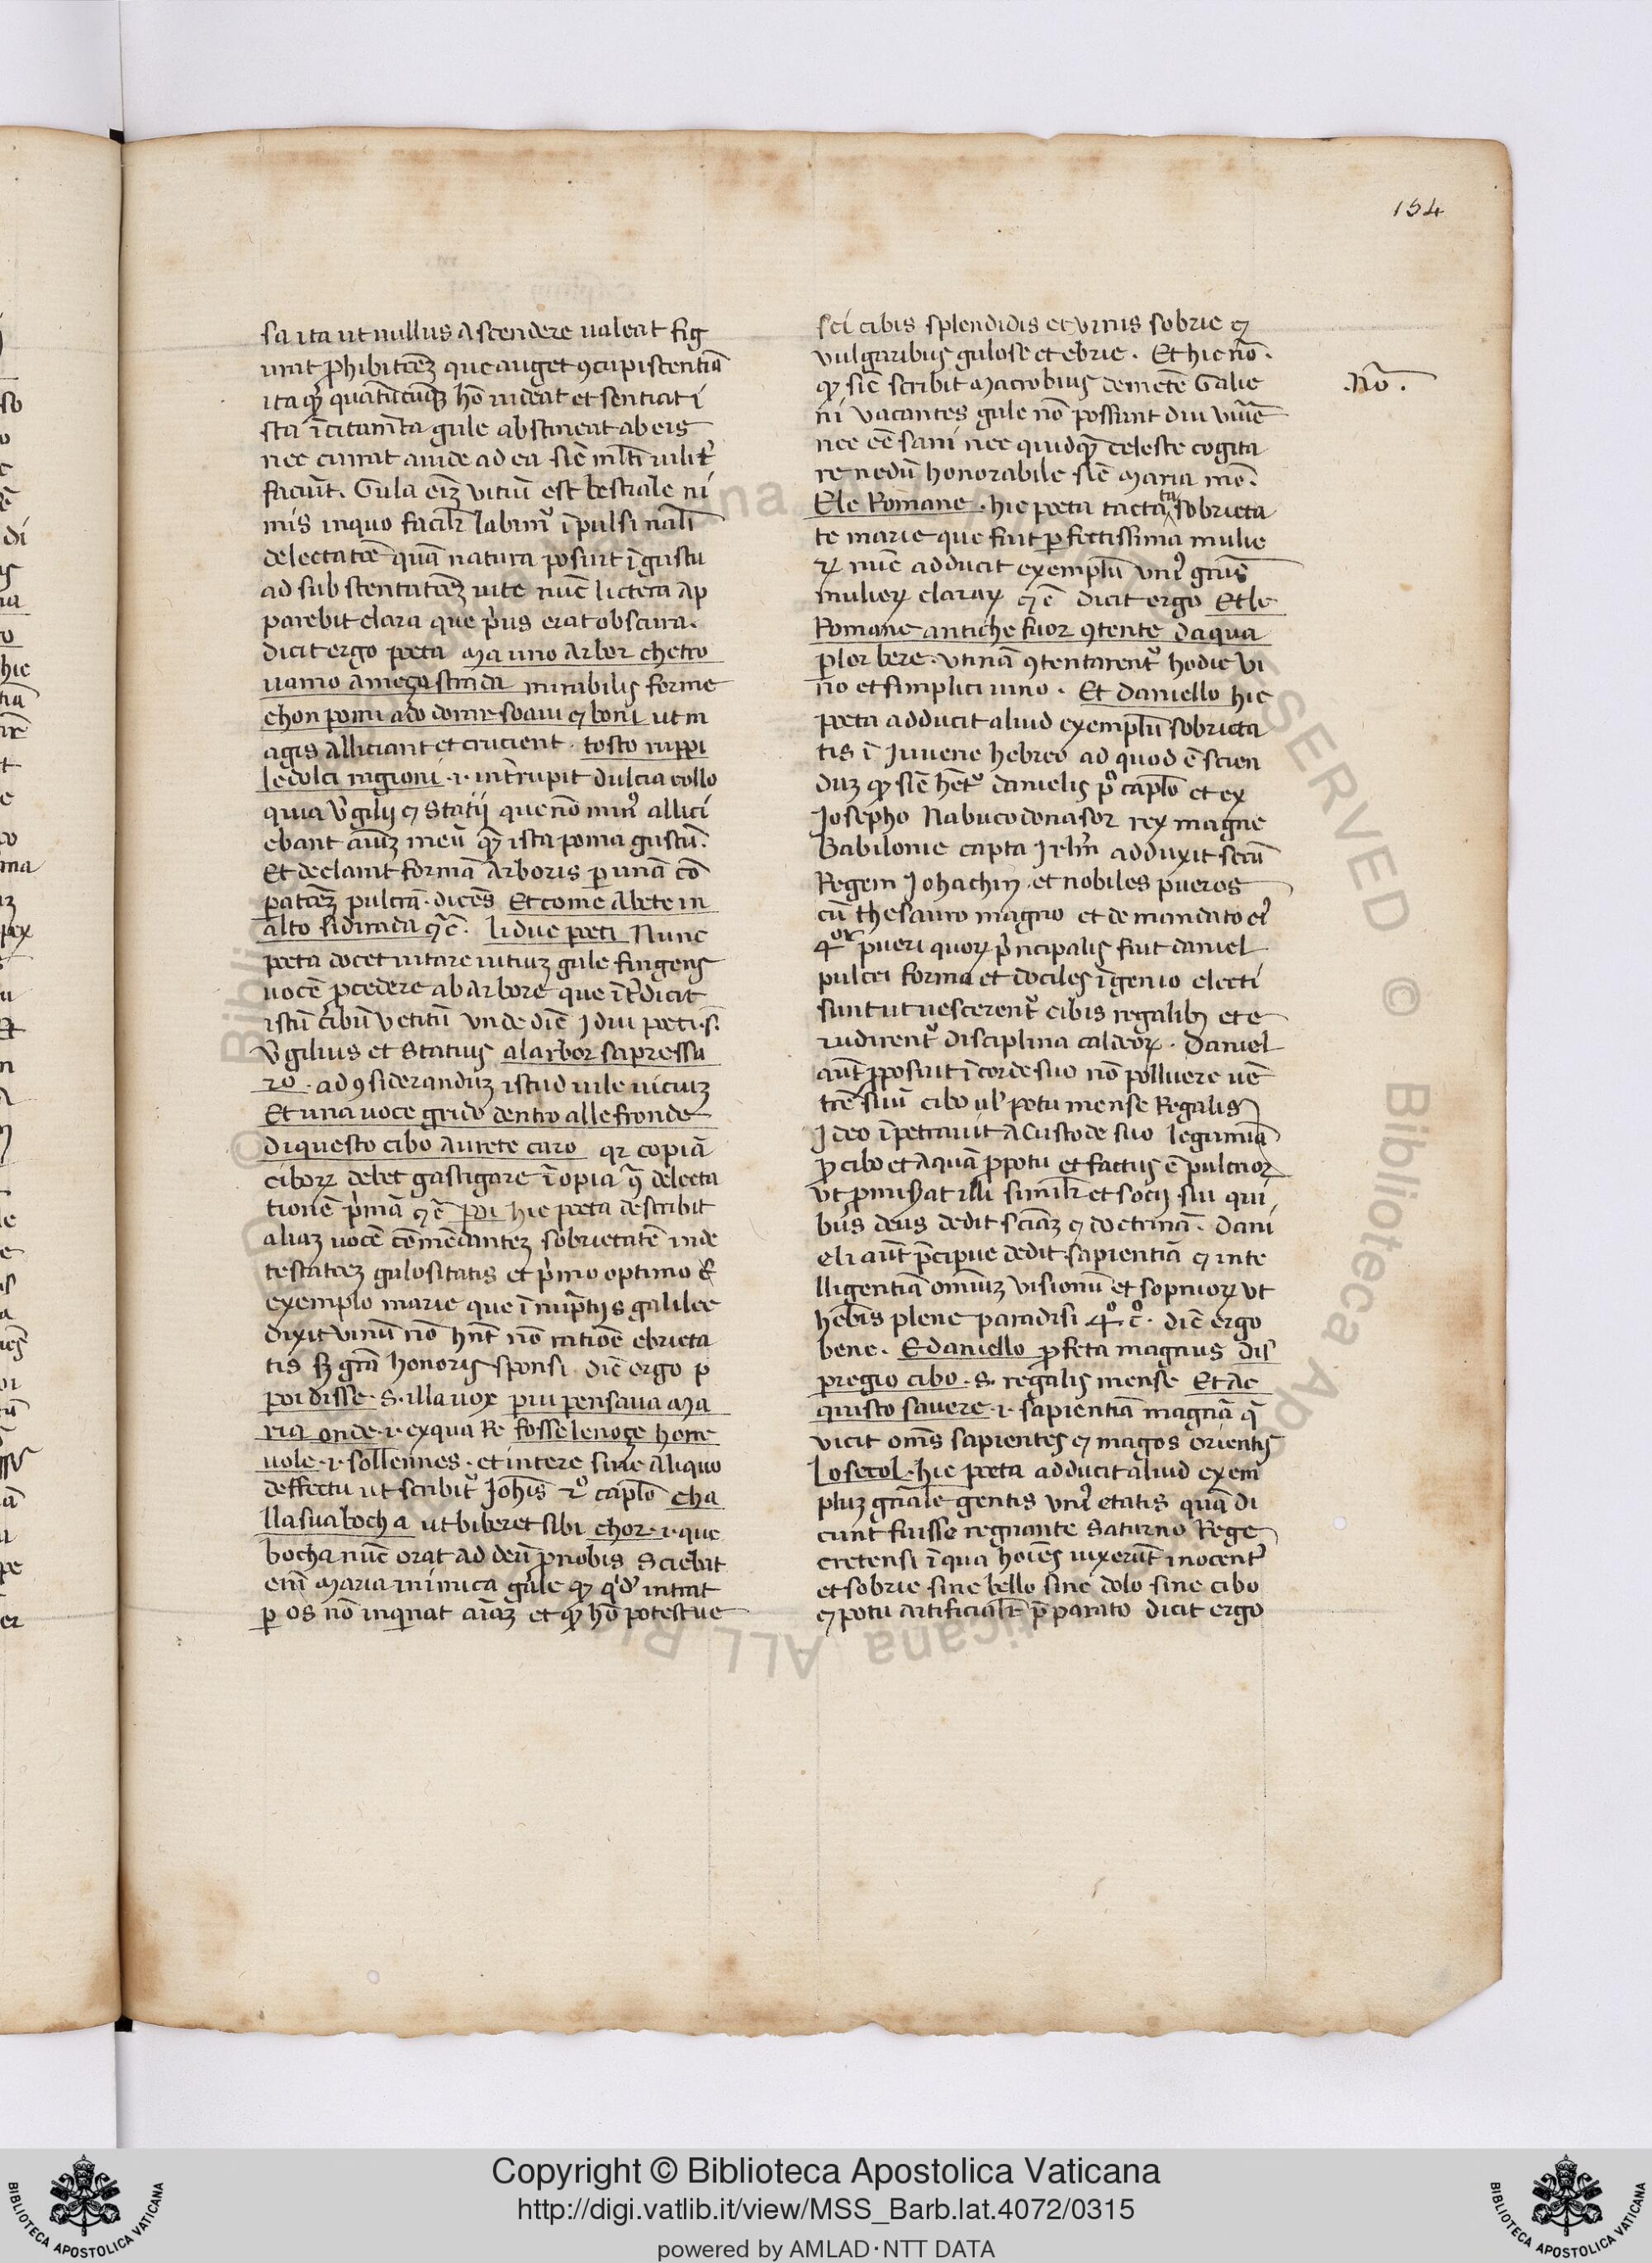 154
sa ita ut nullus ascendere ualeat fig
urat ꝓhibitōeʒ que auget ꝯcupiscentiā
ita qꝫ quātūcūqꝫ hō uideat et sentiat i
sta īcitamīta gule abstineat ab eis
nec currat auide ad ea sic̄ ml̄ti uilit̄
faciūt. Gula eīʒ vitiū est bestiale ni
mis in quo facilr̄ labimᷣ īpulsi nālī
delectatōe quā natura posuit ī gustu
ad substentatōeʒ uite nūc lictera ap
parebit clara que p̄us erat obscura.
dicit ergo poeta Ma uno arbor che tro
uamo a meça strada mirabilis forme
chon pomi a do dorar soaui ⁊ boni ut m
agis alliciant et crucient. tosto ruppi
le dolci ragioni .i. int̄rupit dulcia collo
quia v̄gilij ⁊ Statij que nō minꝰ allici
ebant aīuʒ meū qꝫ ista poma gustū.
Et declarat formā arboris ꝑ unā cō
ꝑatōeʒ pulcrā. dicēs Et come abete in
alto si dirada ⁊c̄. li due poeti Nunc
poeta docet uitare uitiuʒ gule fingens
uocē ꝓcedere ab arbore que īt̄dicit
istū cibū vetitū unde dic̄ j dui poeti .s.
v̄gilius et Statius al arbor sapressa
ro. ad ꝯsiderandūʒ istud uile uiciuʒ
Et una uoce grido dentro alle fronde
di questo cibo aurete caro qꝛ copiā
ciboꝝ debet gastigare īopia ꝙ delecta
tionē p̄imā ⁊c̄ poi hic poeta describit
aliaʒ uocē cōmēdanteʒ sobrietatē in de
testatōeʒ gulositatis et p̄mo optimo
exemplo marie que ī nuptijs galilee
dixit vinū nō hn̄t nō ratiōe ebrieta
tis sʒ grā honoris sponsi. dic̄ ergo p
poi disse .S. illa uox piu pensaua Ma
ria onde .i. ex qua Re fosse le noçe horre
uole .i. sollēnnes. et intere sine aliquo
deffectu ut scribitᷣ Joh̄is 2º cap̄lo cha
lla sua bocha ut biberet sibi chor .i. que
bocha nūc orat ad deū ꝓ nobis. Sciebat
enī Maria inimica gule qꝫ intrat
ꝑ os nō inqīnat aīaʒ et qꝫ hō potest ue
sci cibis splendidis et vinis sobrie ⁊
vulgaribus gulose et ebrie. Et hic nō.
qꝫ sic̄ scribit Macrobius de mēte Galie
ni vacantes gule nō possunt diu viuē
nec eē sani nec quidqꝫ celeste cogita
re nedū honorabile sic̄ Maria mō.
E le Romane. hic poeta tacta ta sobrieta
te marie que fuit ꝑfectissima mulie
ꝝ nūc adducit exemplū vniᷣ gn̄is
mulieꝝ claraꝝ ⁊c̄ dicit ergo Et le
Romane antiche fuor ꝯtente daqua
ꝑ lor bere. utinā ꝯtentarentᷣ hodie vi
no et simplici uino. Et Daniello hic
poeta adducit aliud exemplū sobrieta
tis ī Juuene hebreo ad quod ē scien
duʒ qꝫ sic̄ hētᷣ danielis pº cap̄lo et ex
Josepho Nabucodonasor rex magne
Babilonie capta Jrl̄m adduxit secū
Regem Johachin. et nobiles pueros
cū thesauro magno et de mandato eiꝰ
4or pueri quoꝝ p̄ncipalis fuit daniel
pulcri forma et dociles īgenio electi
sunt ut uescerentᷣ cibis regalibꝫ et e
rudirentᷣ disciplina caldeoꝝ. Daniel
aūt ꝓposuit ī corde suo nō polluere uē
trē suū cibo ul̓ potu mense Regalis
Jdeo īpetrauit a Custode suo legumīa
ꝓ cibo et aquā ꝓ potu et factus ē pulcrior
ut ꝓmisat illi similr̄ et socij sui qui
bus deus dedit sciāʒ ⁊ doctrinā. Dani
eli aūt p̄cipue dedit sapientiā ⁊ inte
lligentiā omīuʒ visionū et sopnioꝝ ut
hēbis plene paradisi 4º cº. dic̄ ergo
bene. E daniello ꝓfeta magnus dis
pregio cibo .S. regalis mense Et ac
quisto sauere .i. sapientiā magnā q̄
vicit om̄s sapientes ⁊ magos orientis
Lo secol. hic poeta adducit aliud exem
pluʒ gn̄ale gentis vniᷣ etatis quā di
cunt fuisse regnante Saturno Rege
cretensi ī qua hoīes uixerūt inocent̄
et sobrie sine bello sine dolo sine cibo
⁊ potu artificialr̄ p̄parato dicit ergo
.Nō.
Copyright © Biblioteca Apostolica Vaticana
http://digi.vatlib.it/view/MSS_Barb.lat.4072/0315
powered by AMLAD·NTT DATA
BIBLIOTECA APOSTOLICA VATICANA
BIBLIOTECA APOSTOLICA VATICANA